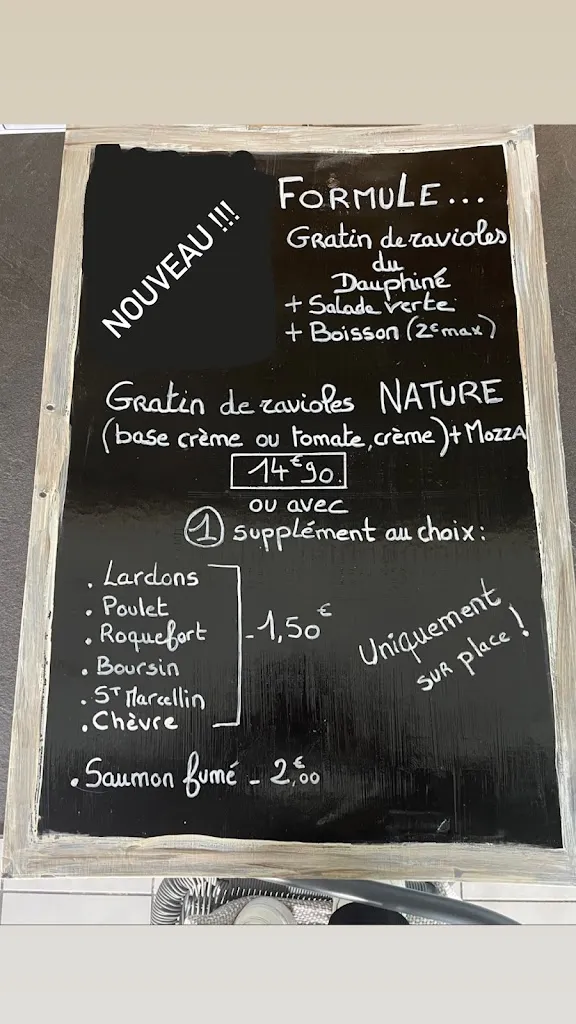 NOUVEAU !!!
FORMULE...
Gratin de ravioles
du
Dauphiné
+ Salade verte
+ Boisson (2€ max)
Gratin de ravioles NATURE
(base crème ou tomate, crème) + MOZZA
14€90.
ou avec
1 supplément au choix :
. Lardons
. Poulet
. Roquefort
. Boursin
. ST Marcellin
. Chèvre
- 1,50€
Uniquement
sur place !
. Saumon fumé - 2€,00